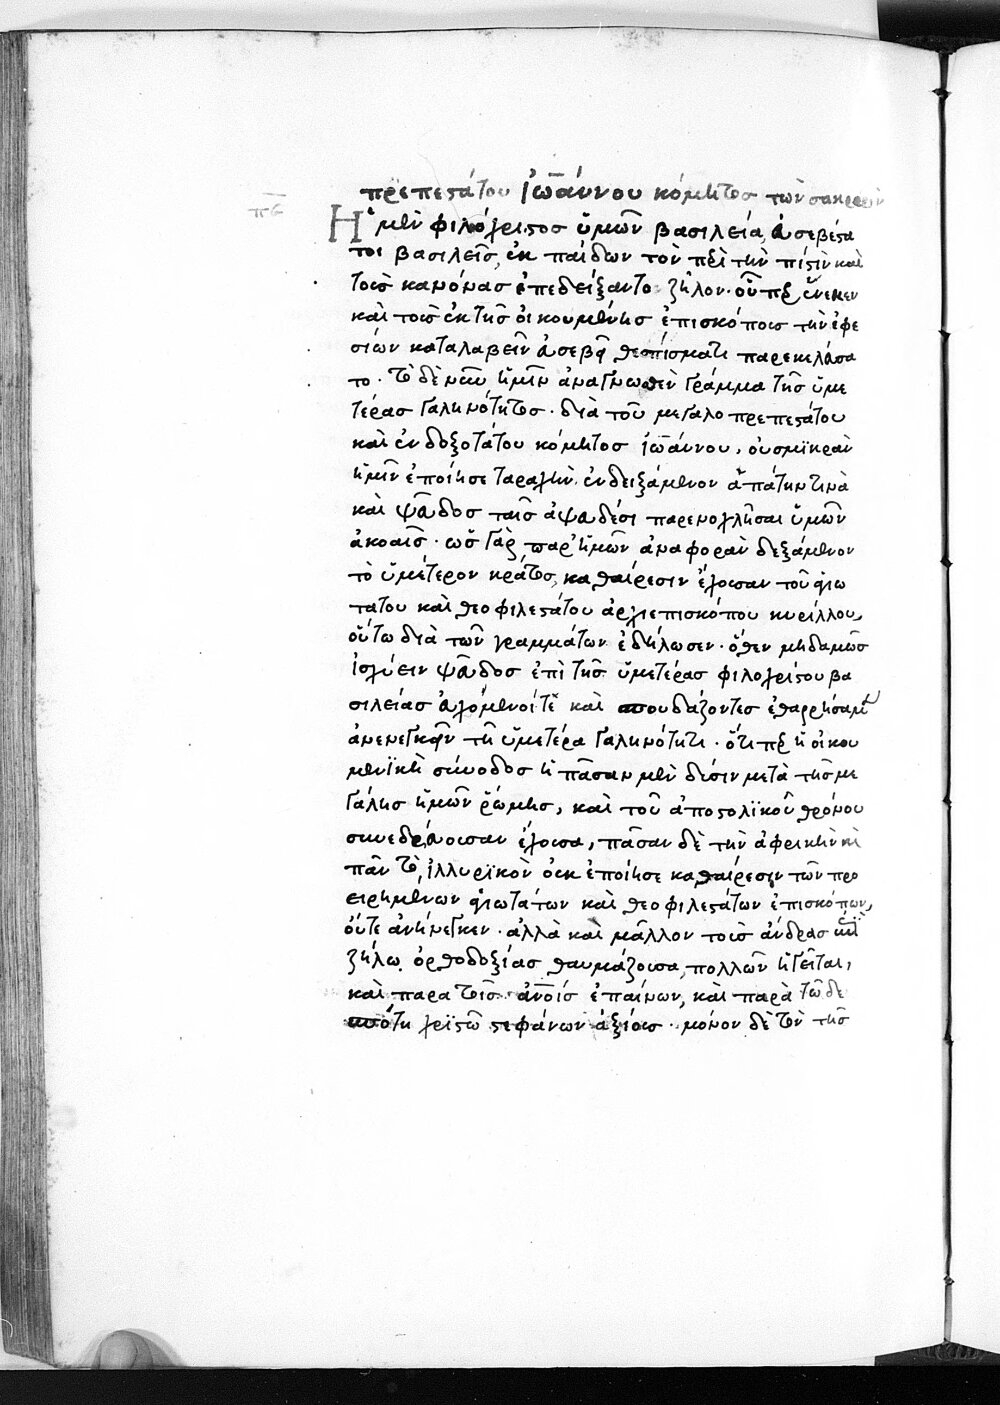 πρεπεστάτου ἰωάννου κόμητος τῶν σακρῶν
πϛ
Ἡ μὲν φιλόχριστος ὑμῶν βασιλεία, εὐσεβέστα
τοι βασιλεῖς, ἐκ παίδων τὸν περὶ τὴν πίστιν καὶ
τοὺς κανόνας ἐπεδείξαντο ζῆλον· οὗπερ ἕνεκεν
καὶ τοὺς ἐκ τῆς οἰκουμένης ἐπισκόπους τὴν ἐφε
σίων καταλαβεῖν εὐσεβεῖ θεσπίσματι παρεκελεύσα
το· τὸ δὲ νῦν ἡμῖν ἀναγνωσθὲν γράμμα τῆς ὑμε
τέρας γαληνότητος· διὰ τοῦ μεγαλοπρεπεστάτου
καὶ ἐνδοξοτάτου κόμητος ἰωάννου, οὐ σμϊκρὰν
ἡμῖν ἐποίησε ταραχὴν, ἐνδειξάμενον ἀπάτην τινὰ
καὶ ψεῦδος ταῖς ἀψευδέσι παρενοχλῆσαι ὑμῶν
ἀκοαῖς· ὡς γὰρ παρ' ἡμῶν ἀναφορὰν δεξάμενον
τὸ ὑμέτερον κράτος, καθαίρεσιν ἔχουσαν τοῦ ἁγιω
τάτου καὶ θεοφιλεστάτου ἀρχιεπισκόπου κυρίλλου,
οὕτω διὰ τῶν γραμμάτων ἐδήλωσεν· ὅθεν μηδαμῶς
ἰσχύειν ψεῦδος ἐπὶ τῆς ὑμετέρας φιλοχρίστου βα
σιλείας εὐχόμενοί τε καὶ σπουδάζοντες ἐθαρρήσαμεν
ἀνενεγκεῖν τῆ ὑμετέρα γαληνότητι· ὅτι περ ἡ οἰκου
μενϊκὴ σύνοδος ἡ πᾶσαν μὲν δύσιν μετὰ τῆς με
γάλης ἡμῶν ῥώμης, καὶ τοῦ ἀποστολϊκοῦ θρόνου
συνεδρεύουσαν ἔχουσα, πᾶσαν δὲ τὴν ἀφρικὴν καὶ
πᾶν τὸ ἰλλυρϊκὸν οὐκ ἐποίησε καθαίρεσιν τῶν προ
ειρημένων ἁγιωτάτων καὶ θεοφιλεστάτων ἐπισκόπων,
οὔτε ἀνήνεγκεν· ἀλλὰ καὶ μᾶλλον τοὺς ἄνδρας ἐπὶ
ζήλω ὀρθοδοξίας θαυμάζουσα, πολλῶν ἡγεῖται,
καὶ παρὰ τοῖς ἀνοις ἐπαίνων, καὶ παρὰ τῶ δε
σπότη χριστῶ στεφάνων ἀξίους· μόνον δὲ τὸν τῆς